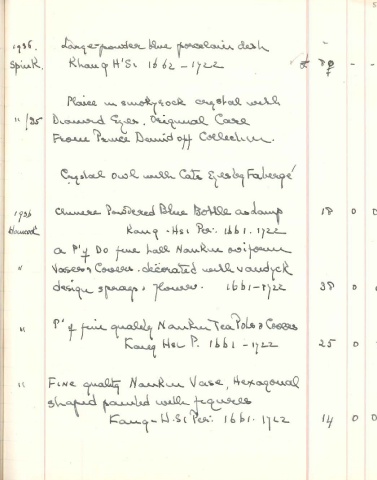 1936. Large powder blue porcelain dish -
Spink. Khang H'Si 1662-1722 £ 70 - -
Plaice in smoky rock crystal with
" /35 Diamond Eyes. Original Case
From Prince Demidoff Collection.
Crystal owl with Cats Eyes by Fabergé
1936 Chinese Powdered Blue Bottle as lamp 18 0 0
Hancock Kang-Hsi Per: 1661.1722
a Pr of Do fine tall Nankin oviform
" Vases & Covers. decorated with vandyck
design sprays & flowers. 1661-1722 38 0 0
" Pr of fine quality Nankin Tea Pots & Covers
Kang Hsi P. 1661-1722 25 0
" Fine quality Nankin Vase, Hexagonal
shaped painted with figures
Kang-H.Si Per: 1661.1722 14 0 0